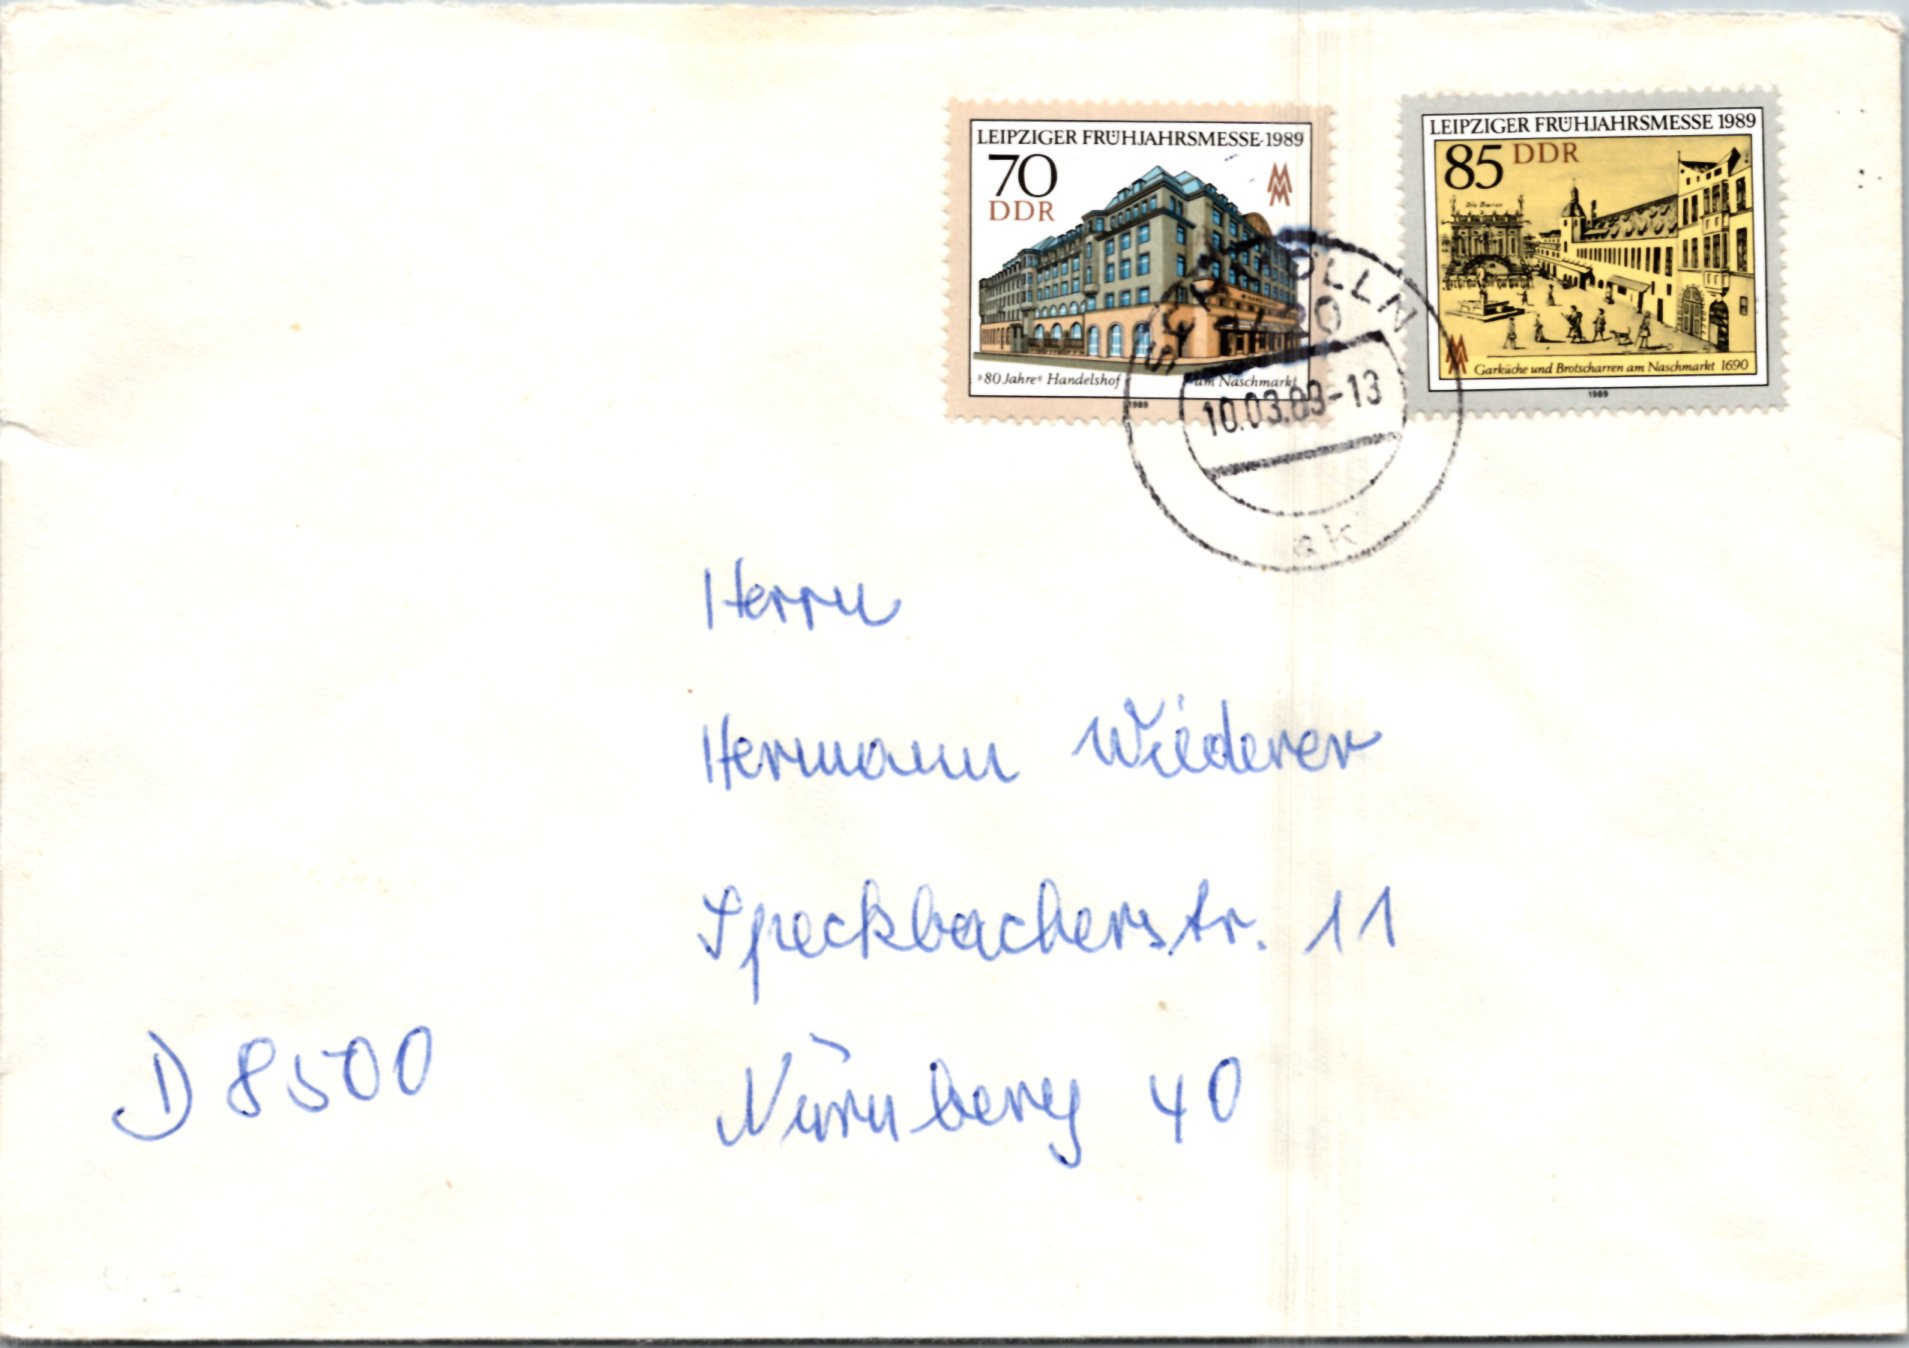 LEIPZIGER FRÜHJAHRSMESSE·1989
70
DDR
MM
»80 Jahre« Handelshof am Naschmarkt
1989
LEIPZIGER FRÜHJAHRSMESSE 1989
85 DDR
MM
Garküche und Brotscharren am Naschmarkt 1690
1989
SCHMÖLLN
10.03.89-13
ak
Herrn
Hermann Wiederer
Speckbacherstr. 11
D 8500 Nürnberg 40